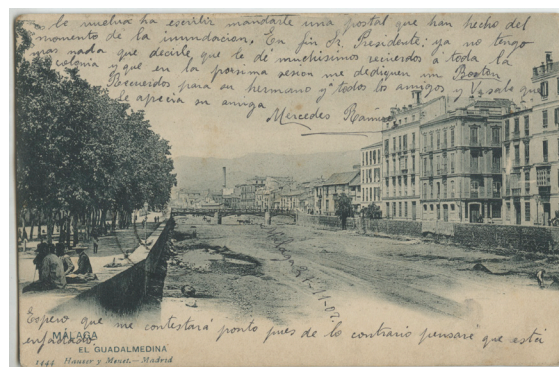 le vuelva ha escribir mandarle una postal que han hecho del
momento de la inundacion. En fin Sr. Presidente: ya no tengo
mas nada que decirle, que le dé muchisimos recuerdos a toda la
colonia y que en la proxima sesion me dediquen un Boston
Recuerdos para su hermano y todos los amigos y Usted que
le aprecia su amiga
Mercedes Ramirez
Espero que me contestará pronto pues de lo contrario pensaré que está
enfadado.
MÁLAGA
EL GUADALMEDINA
1444 Hauser y Menet.—Madrid